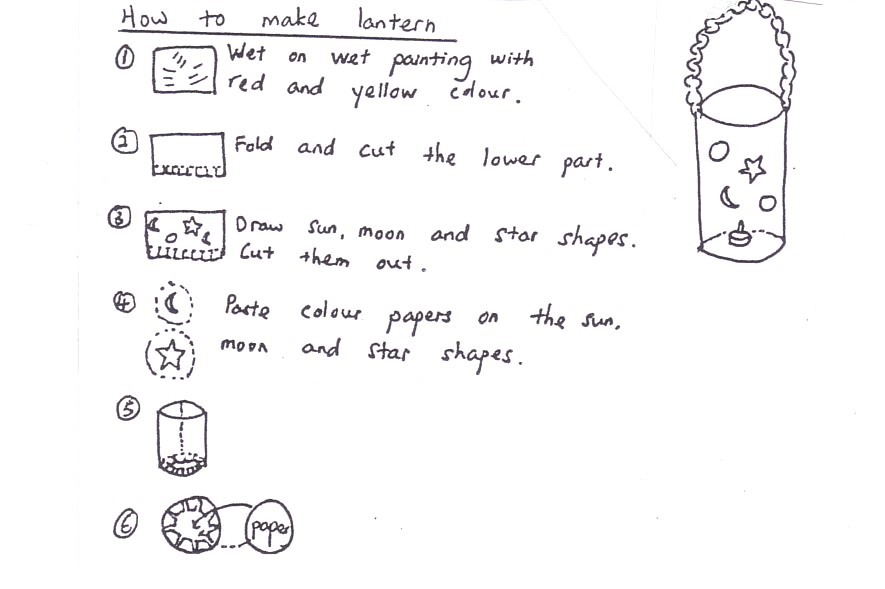 How to make lantern
① Wet on wet painting with
red and yellow colour.
② Fold and cut the lower part.
③ Draw sun, moon and star shapes.
Cut them out.
④ Paste colour papers on the sun,
moon and star shapes.
⑤
⑥ paper